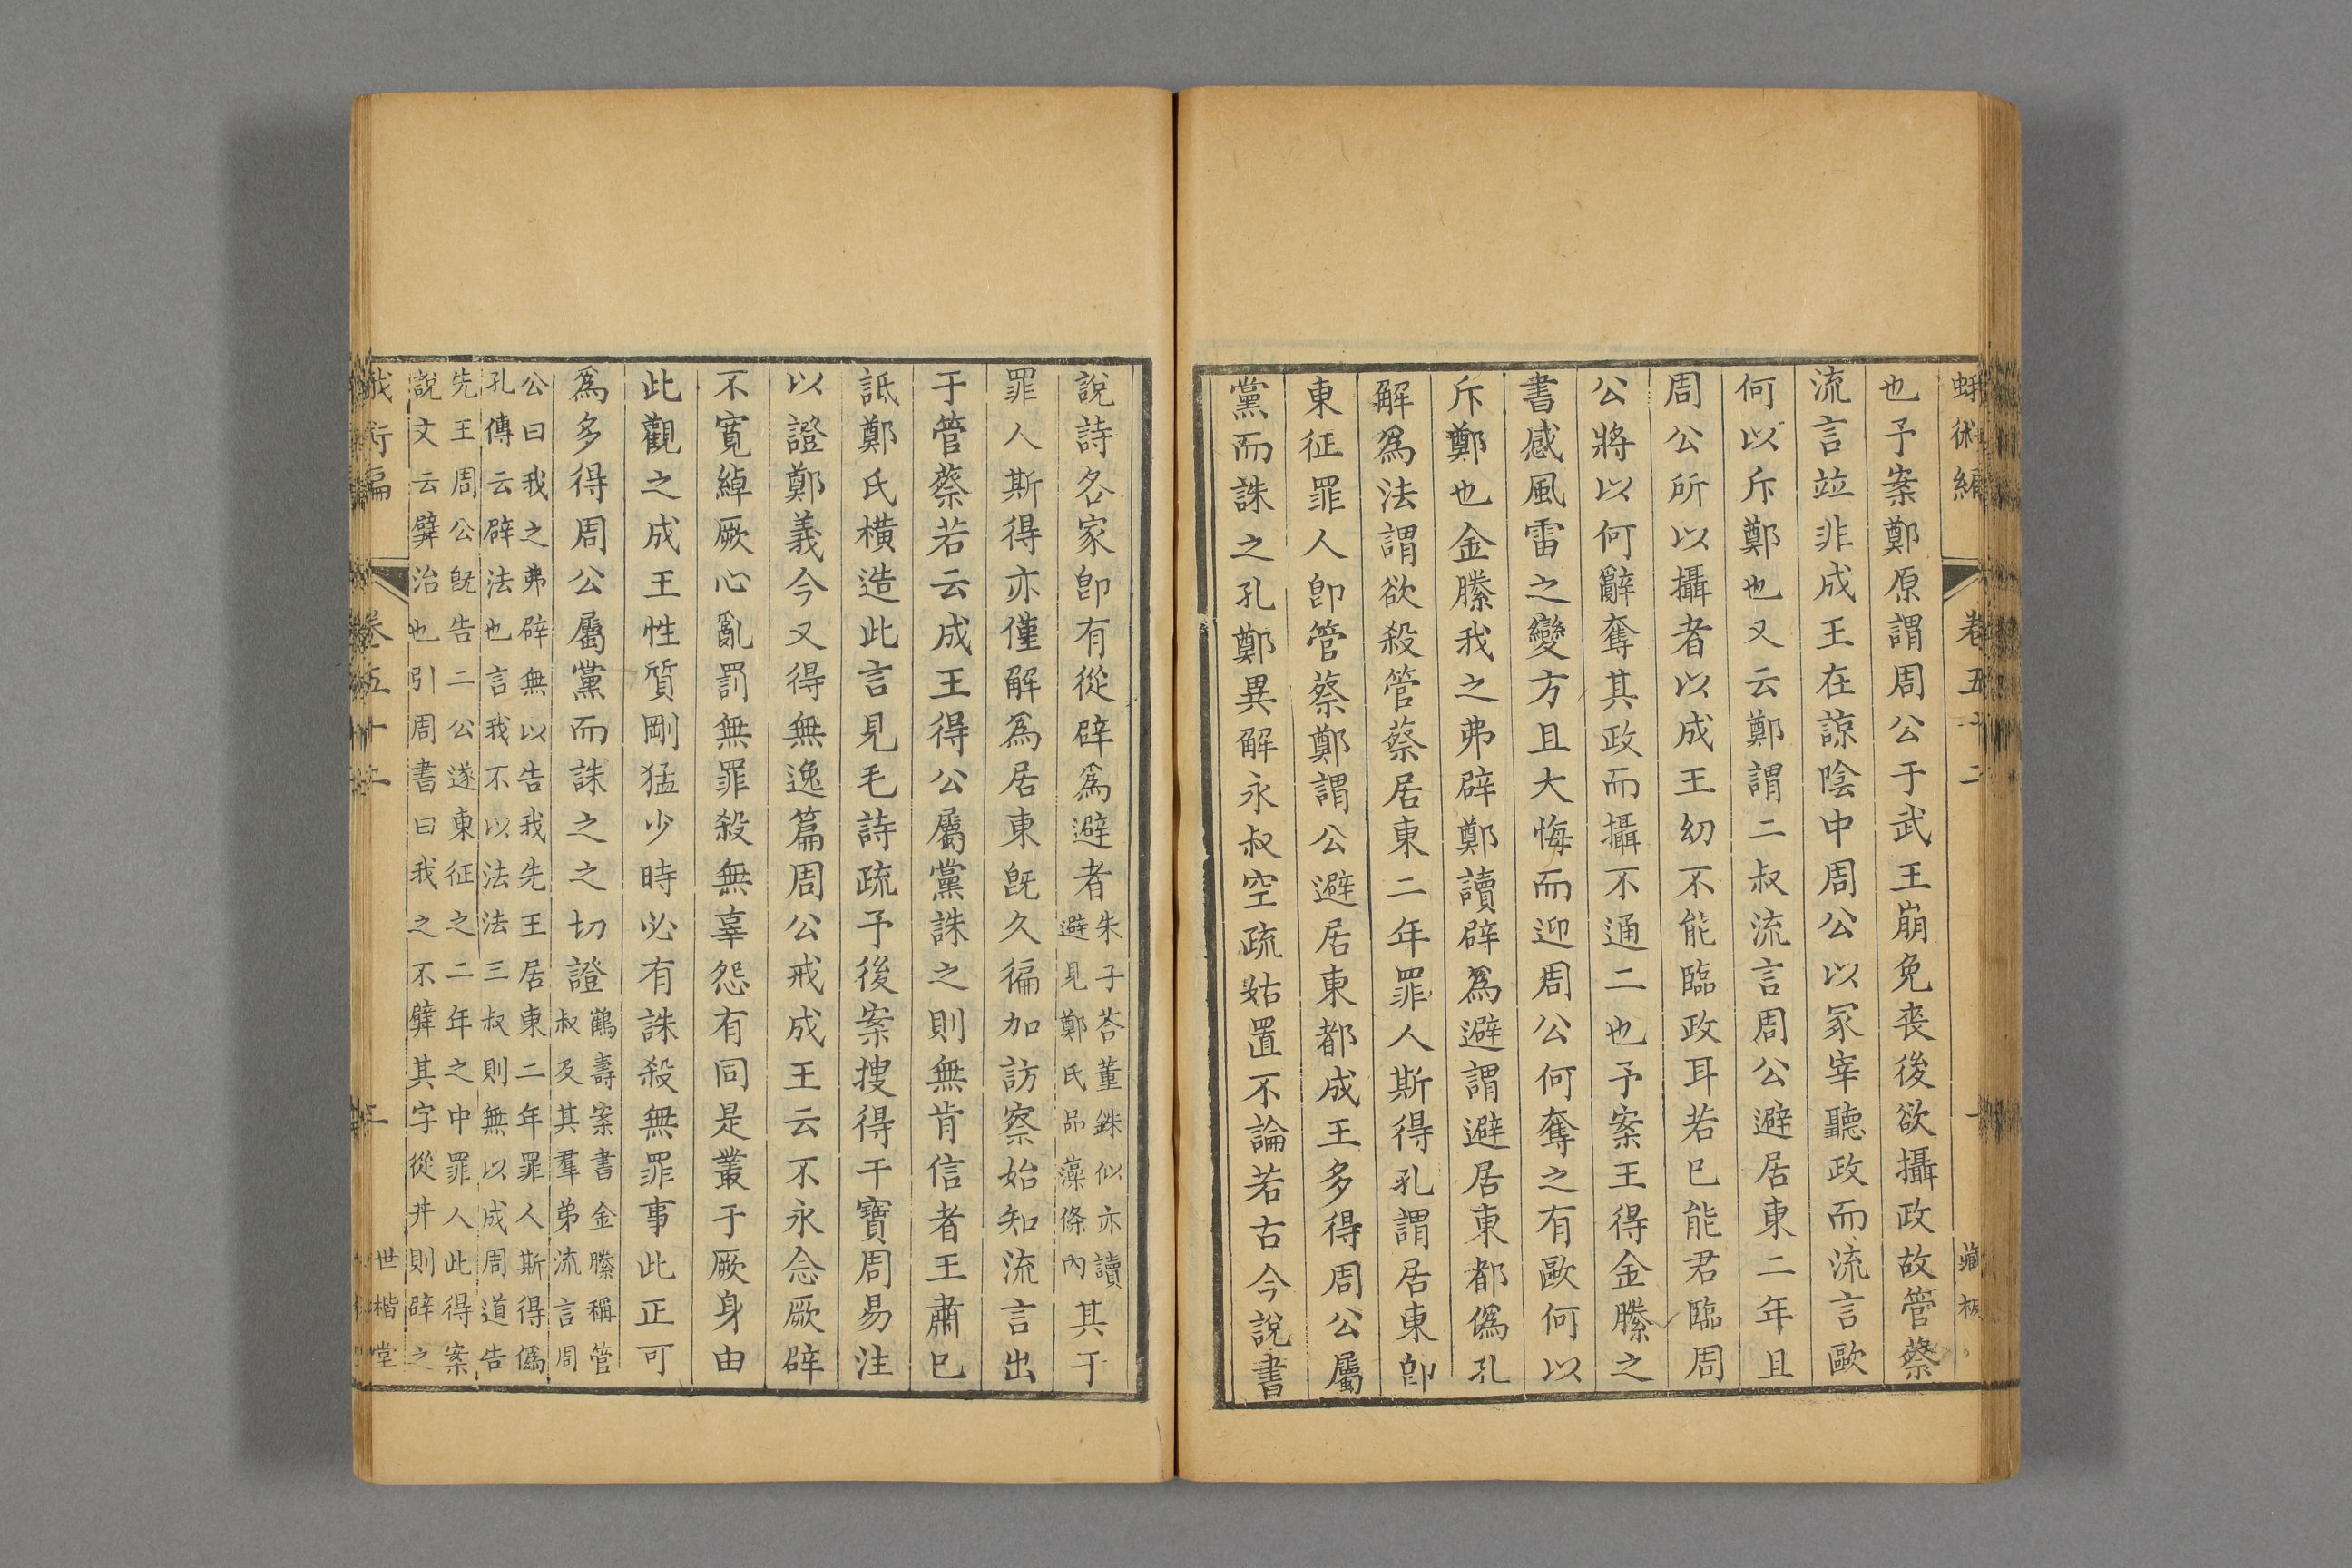 蛾術編 卷五十二 一 藏板
也予案鄭原謂周公于武王崩免喪後欲攝政故管蔡
流言竝非成王在諒陰中周公以冢宰聽政而流言歐
何以斥鄭也又云鄭謂二叔流言周公避居東二年且
周公所以攝者以成王幼不能臨政耳若已能君臨周
公將以何辭奪其政而攝不通二也予案王得金縢之
書感風雷之變方且大悔而迎周公何奪之有歐何以
斥鄭也金縢我之弗辟鄭讀辟爲避謂避居東都僞孔
解爲法謂欲殺管蔡居東二年罪人斯得孔謂居東卽
東征罪人卽管蔡鄭謂公避居東都成王多得周公屬
黨而誅之孔鄭異解永叔空疏姑置不論若古今說書
說詩名家卽有從辟爲避者朱子荅董銖似亦讀
避見鄭氏品藻條內其于
罪人斯得亦僅解爲居東旣久徧加訪察始知流言出
于管蔡若云成王得公屬黨誅之則無肯信者王肅已
詆鄭氏橫造此言見毛詩疏予後案搜得干寶周易注
以證鄭義今又得無逸篇周公戒成王云不永念厥辟
不寬綽厥心亂罰無罪殺無辜怨有同是叢于厥身由
此觀之成王性質剛猛少時必有誅殺無罪事此正可
爲多得周公屬黨而誅之之切證鶴壽案書金縢稱管
叔及其羣弟流言周
公曰我之弗辟無以告我先王居東二年罪人斯得僞
孔傳云辟法也言我不以法法三叔則無以成周道告
先王周公旣告二公遂東征之二年之中罪人此得案
說文云𨐨治也引周書曰我之不𨐨其字從井則辟之
蛾術編 卷五十二 二 世楷堂